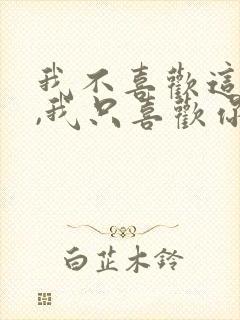 我不喜歡這
,我只喜歡你
白芷木鈴